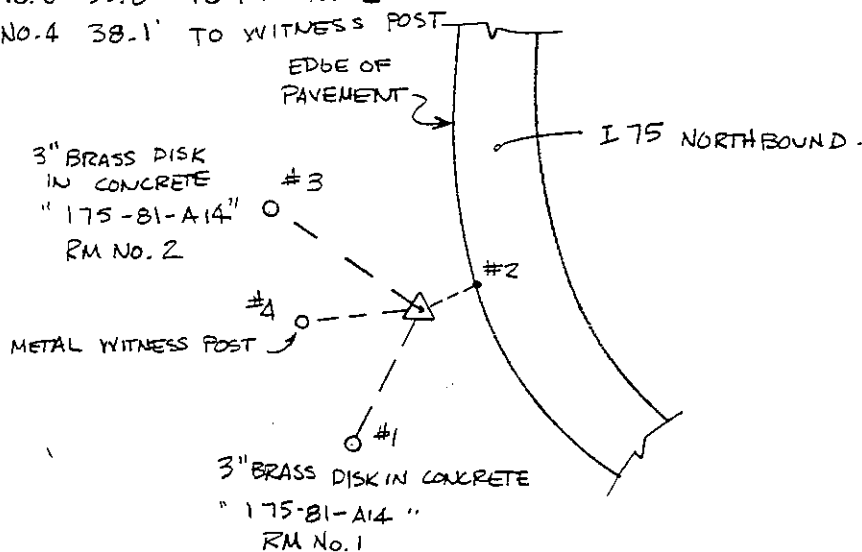 NO.4 38.1' TO WITNESS POST
EDGE OF
PAVEMENT
I 75 NORTHBOUND.
3" BRASS DISK
IN CONCRETE
" 175-81-A14"
RM NO. 2
#3
#2
#4
METAL WITNESS POST
#1
3" BRASS DISK IN CONCRETE
" 175-81-A14 "
RM No. 1